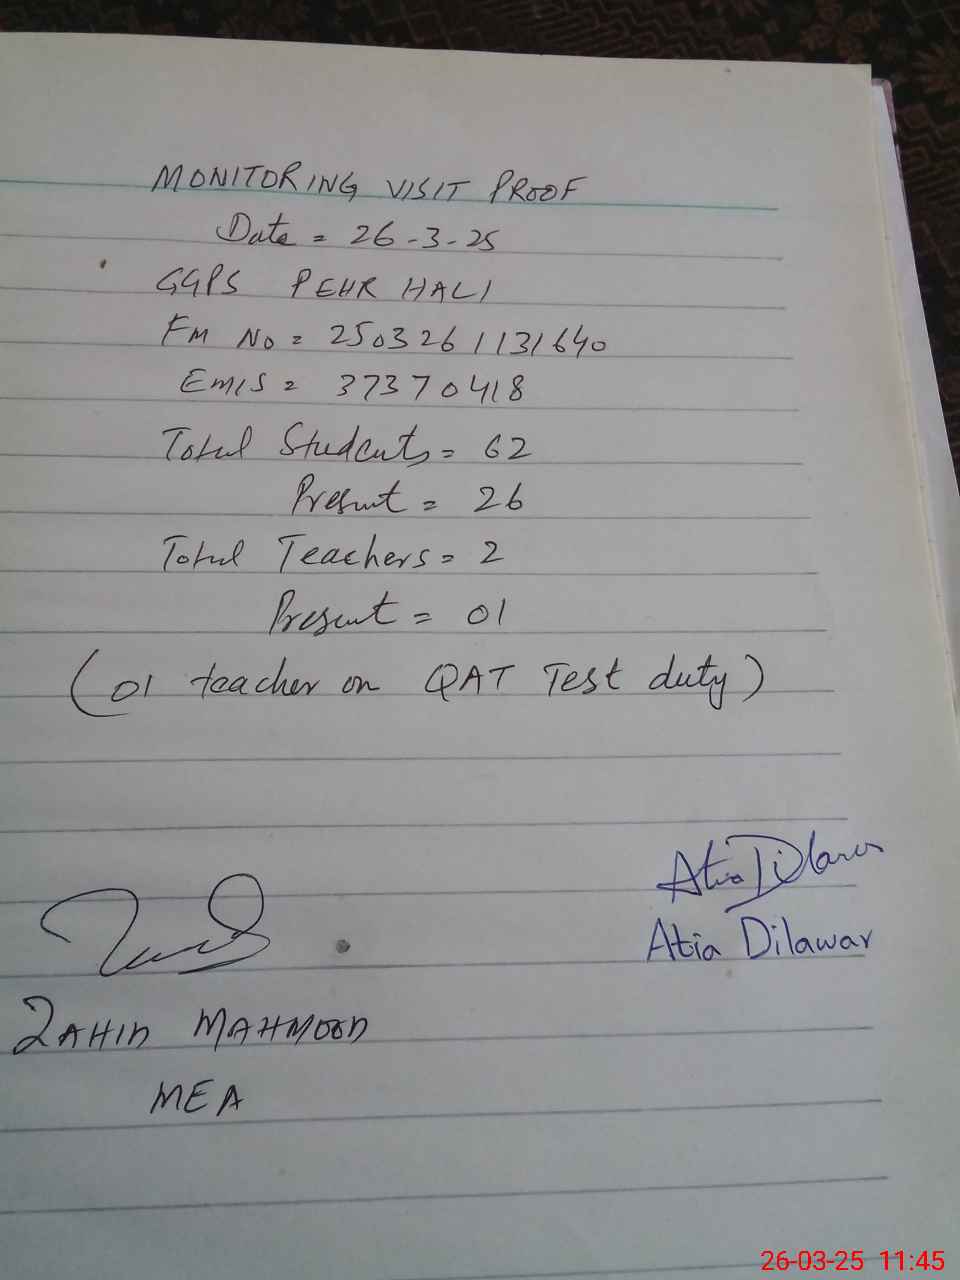 MONITORING VISIT PROOF
Date = 26-3-25
GGPS PEHR HALI
FM No = 2503261131640
EMIS = 37370418
Total Students = 62
Present = 26
Total Teachers = 2
Present = 01
(01 teacher on QAT Test duty)
Atia Dilawar
Atia Dilawar
ZAHID MAHMOOD
MEA
26-03-25 11:45